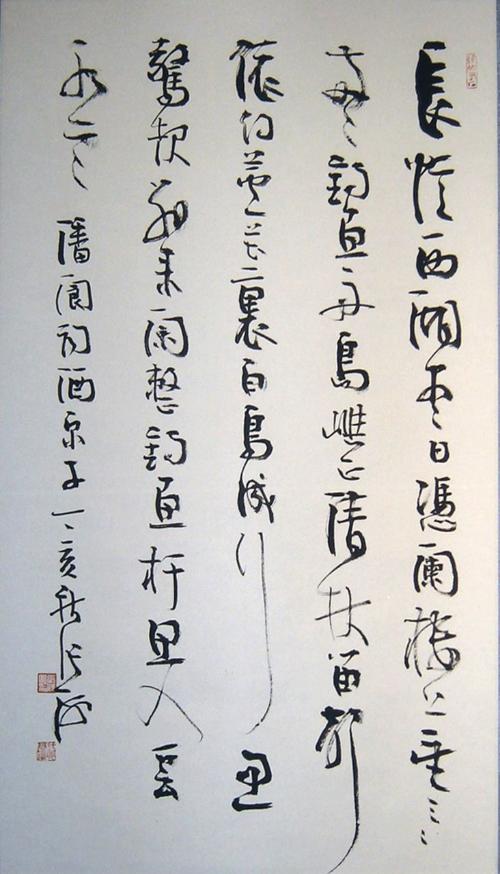 長憶西湖尽日憑闌樓上望三三
两两釣魚舟島嶼正清秋笛聲
依約芦花裏白鳥成行忽
驚起別来闌整釣魚竿思入雲
水寒 潘阆詞酒泉子丁亥秋張